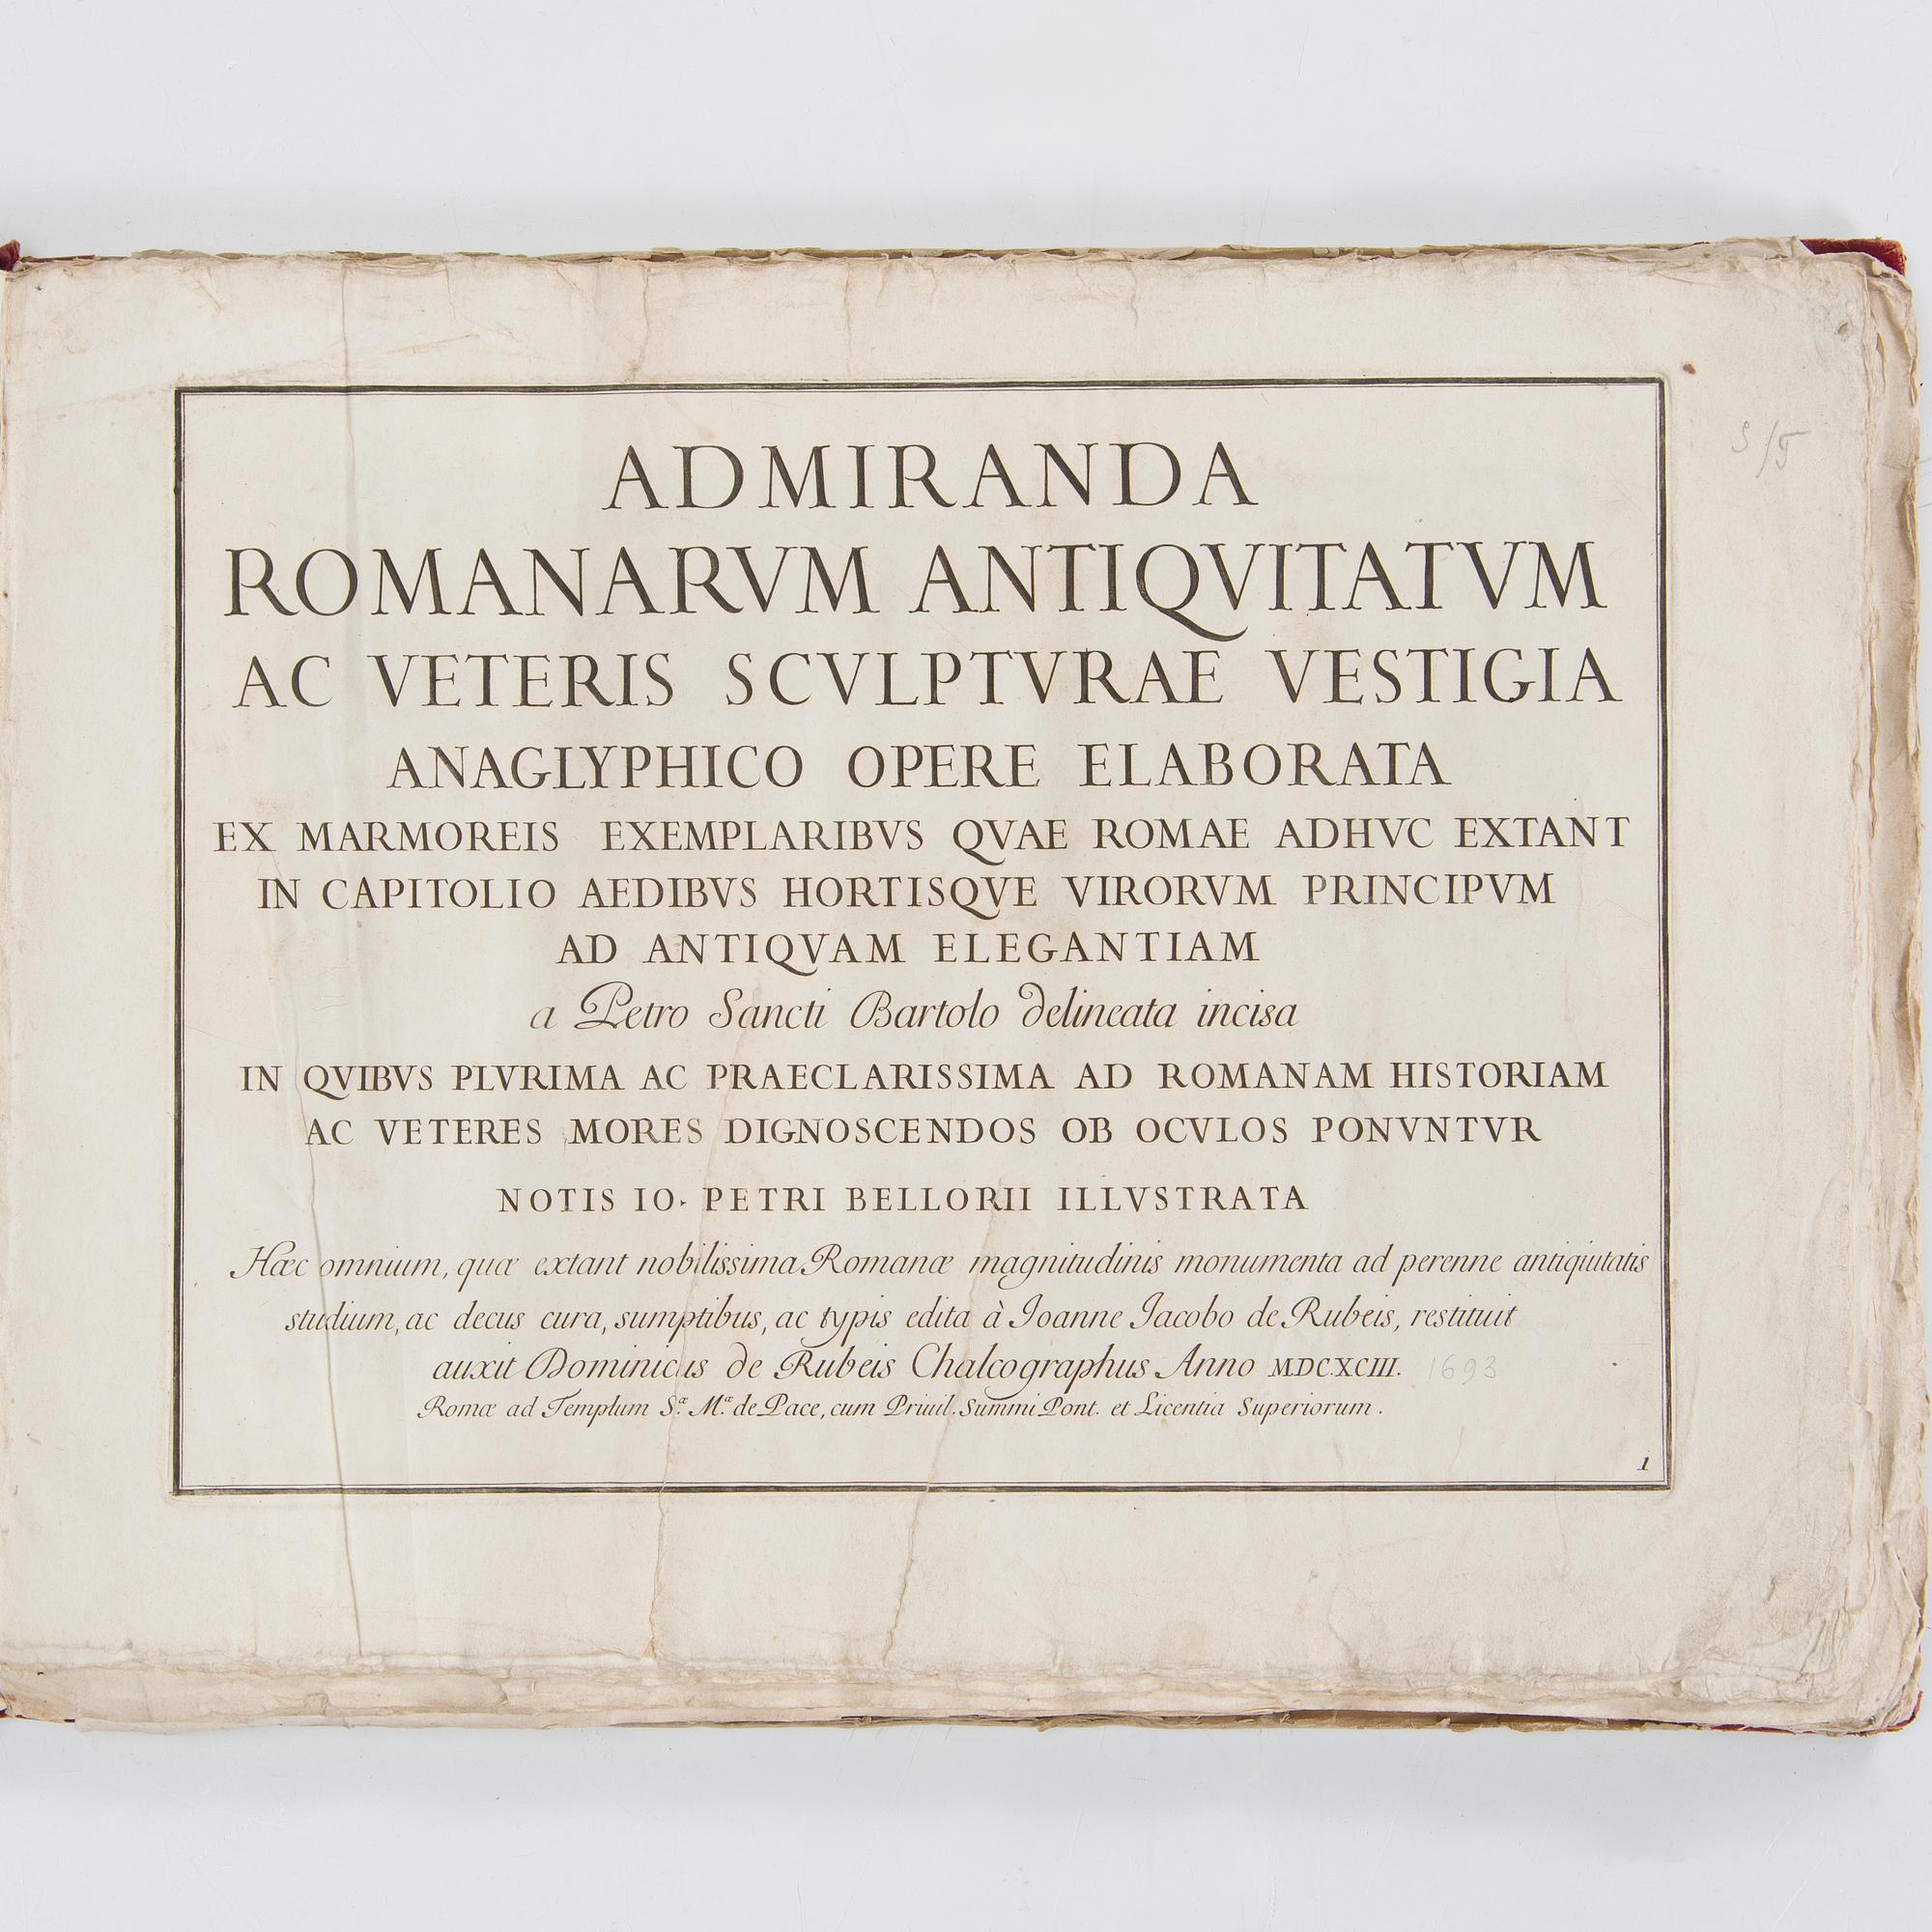 ADMIRANDA
ROMANARVM ANTIQVITATVM
AC VETERIS SCVLPTVRAE VESTIGIA
ANAGLYPHICO OPERE ELABORATA
EX MARMOREIS EXEMPLARIBVS QVAE ROMAE ADHVC EXTANT
IN CAPITOLIO AEDIBVS HORTISQVE VIRORVM PRINCIPVM
AD ANTIQVAM ELEGANTIAM
a Petro Sancti Bartolo delineata incisa
IN QVIBVS PLVRIMA AC PRAECLARISSIMA AD ROMANAM HISTORIAM
AC VETERES MORES DIGNOSCENDOS OB OCVLOS PONVNTVR
NOTIS IO. PETRI BELLORII ILLVSTRATA
Hæc omnium, quæ extant nobilissima Romanæ magnitudinis monumenta ad perenne antiquitatis
studium, ac decus cura, sumptibus, ac typis edita à Ioanne Iacobo de Rubeis, restituit
auxit Dominicus de Rubeis Chalcographus Anno MDCXCIII. 1693
Romæ ad Templum S.æ M.æ de Pace, cum Priuil. Summi Pont. et Licentia Superiorum.
1